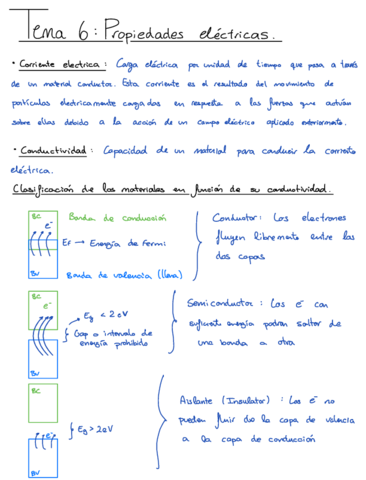 Tema 6: Propiedades eléctricas.
• Corriente electrica: Carga eléctrica por unidad de tiempo que pasa a través
de un material conductor. Esta corriente es el resultado del movimiento de
partículas electricamente cargadas en respuesta a las fuerzas que actúan
sobre ellas debido a la acción de un campo eléctrico aplicado exteriormente.
• Conductividad: Capacidad de un material para conducir la corriente
eléctrica.
Clasificación de los materiales en función de su conductividad.
BC
Banda de conducción
e⁻
EF → Energía de Fermi
BV
Banda de valencia (llena)
Conductor: Los electrones
fluyen libremente entre las
dos capas
BC
e⁻
Eg < 2eV
Gap o intervalo de
energía prohibido
BV
Semiconductor: Los e⁻ con
suficiente energía podrán saltar de
una banda a otra
BC
e⁻
Eg > 2eV
BV
Aislante (Insulator): Los e⁻ no
pueden fluir de la capa de valencia
a la capa de conducción